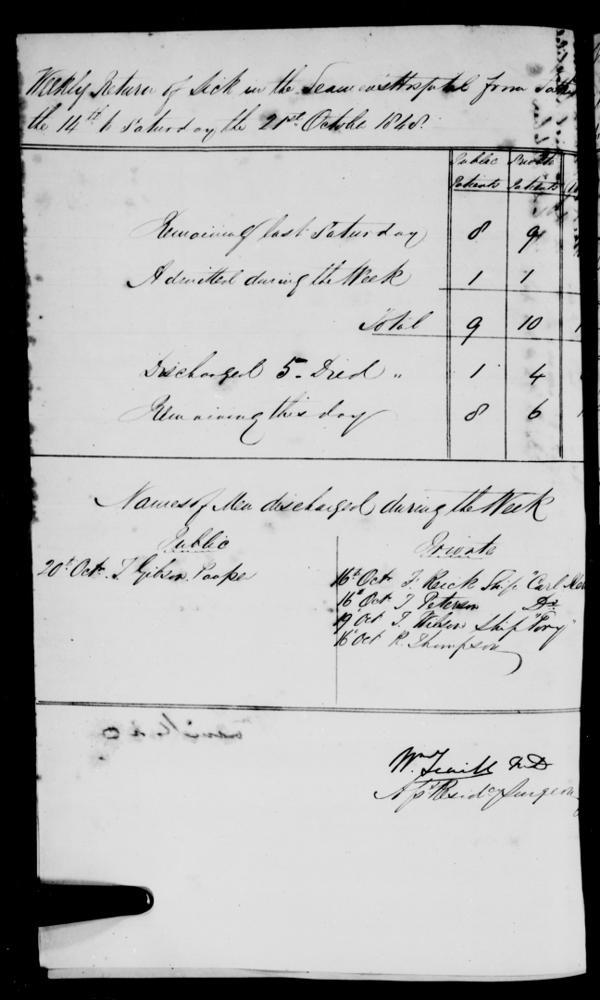 Weekly Return of Sick in the Seamen's Hospital from Satur
the 14th to Saturday the 21st October 1848.
Public Private
Patients Patients
Remaining last Saturday 8 9
Admitted during the Week 1 1
Total 9 10 1
Discharged 5. Died " 1 4
Remaining this day 8 6 1
Names of Men discharged during the Week
Public
Private
20th Oct. T. Gibson. Pauper
16th Oct J. Reick Ship "Carl
16th Oct J. Peterson Do
19th Oct J. Wilson Ship
16th Oct R. Thompson
Wm MD
Asst Residcy Surgeon